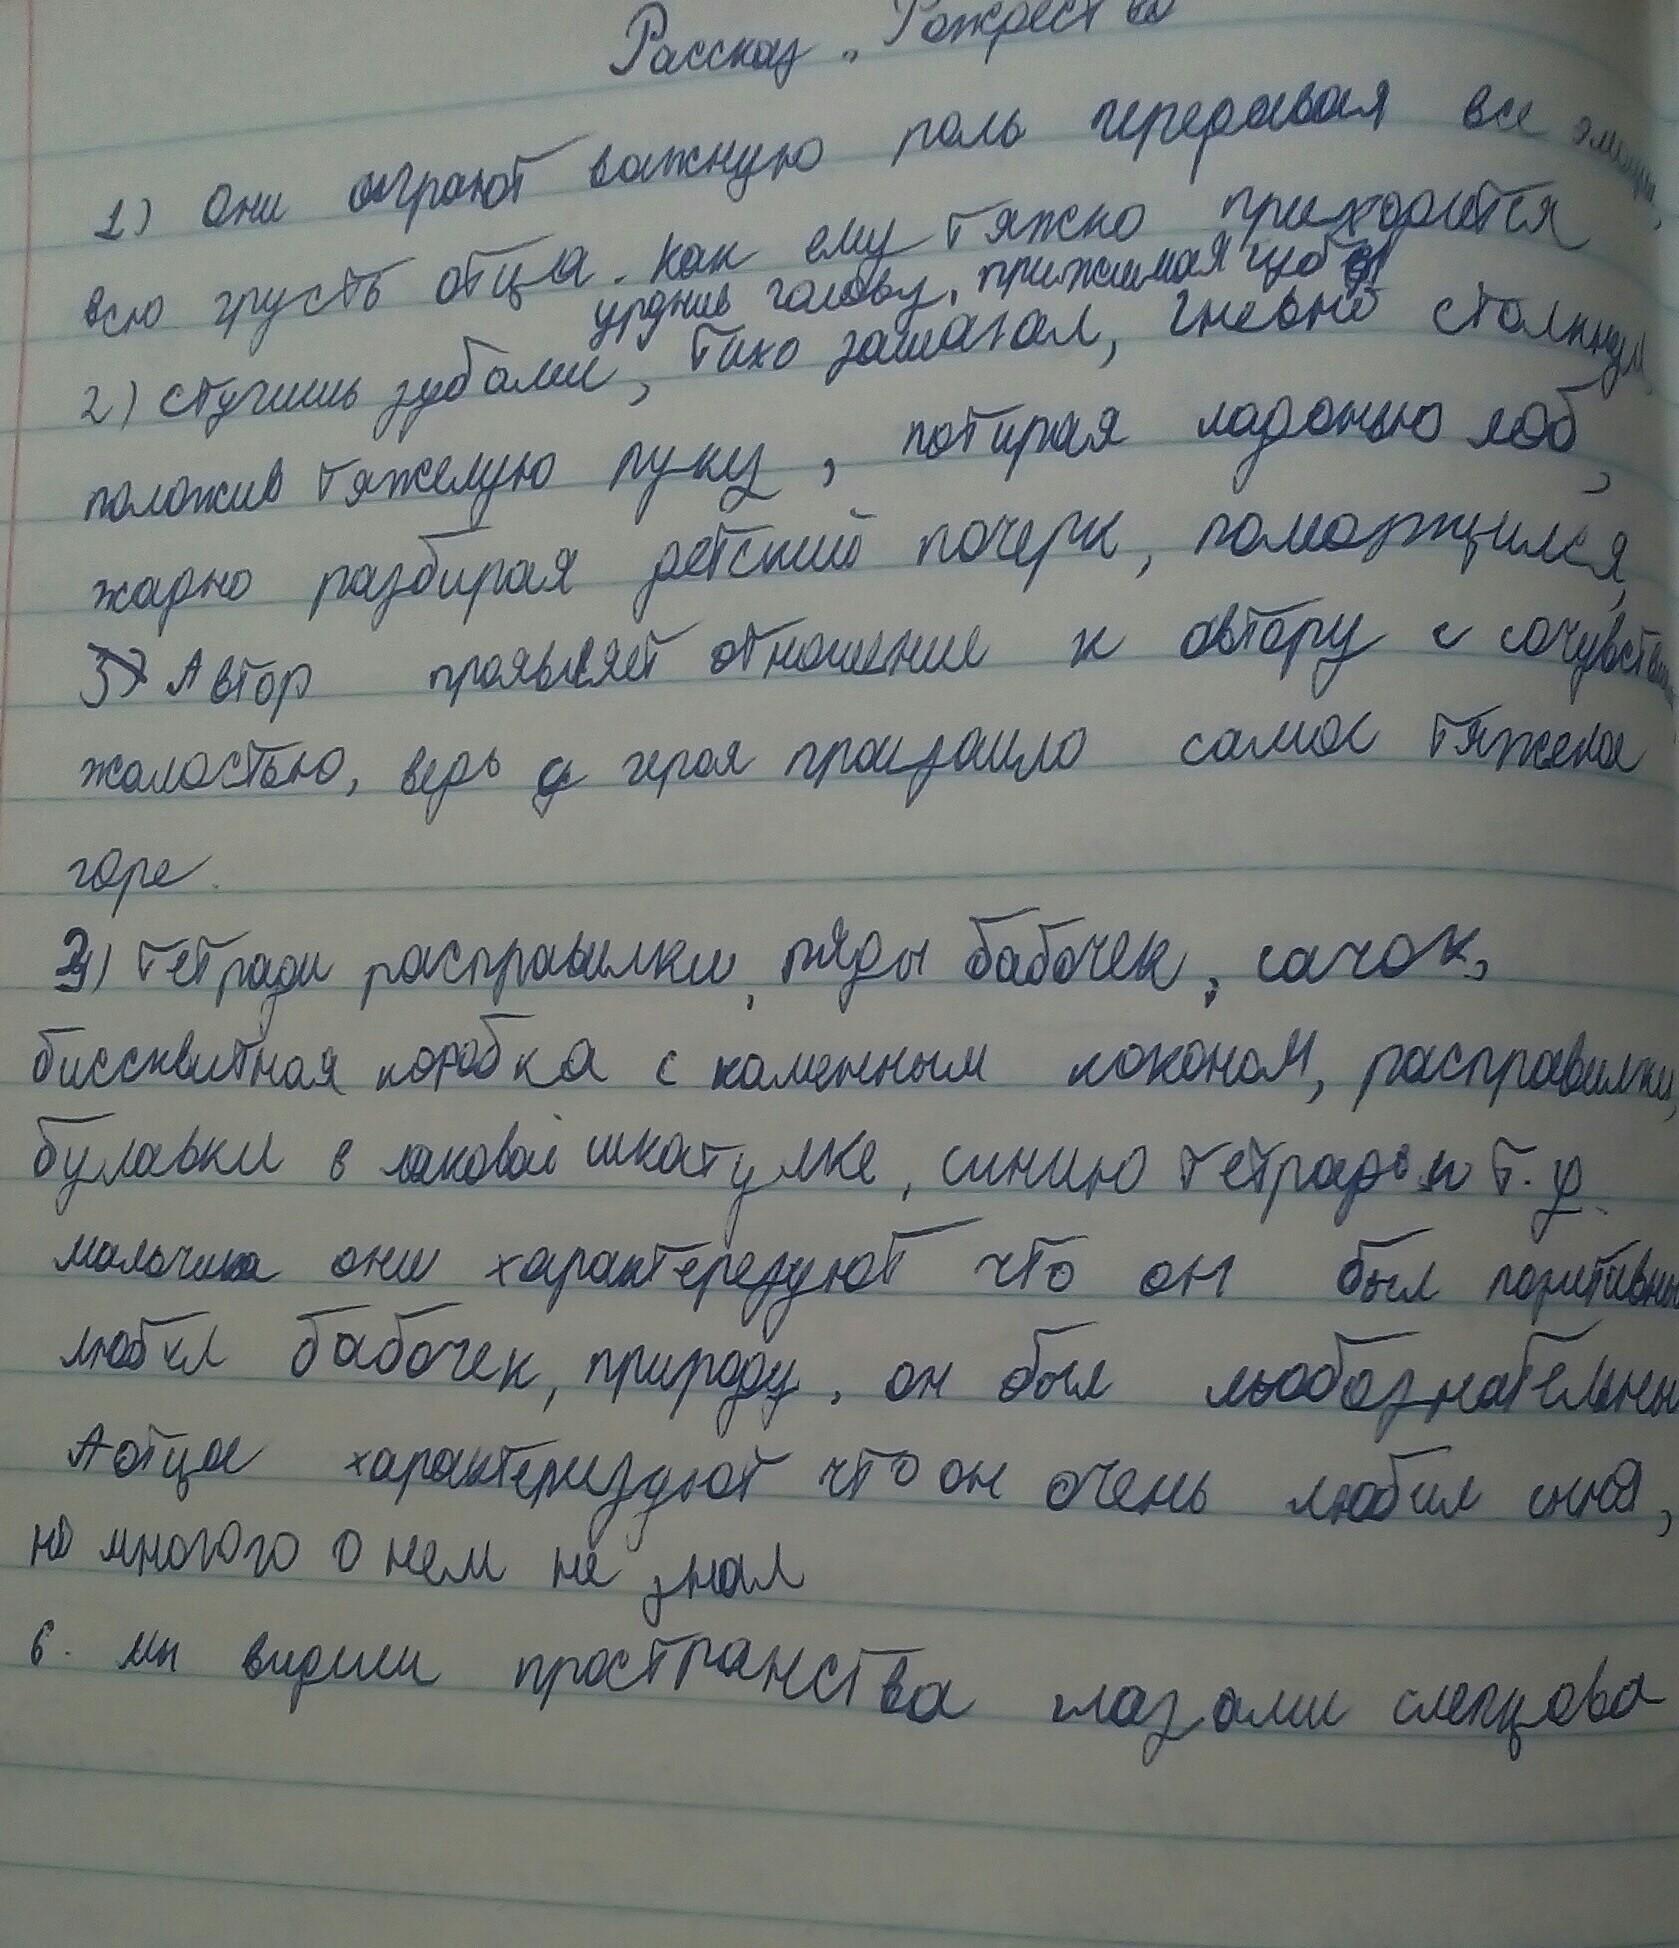 Рассказ „Рождество
1) Они играют важную роль передавая все эмоции,
всю грусть отца. как ему тяжко приходится
уронив голову, прижимая
2) стучишь зубами, тихо зашагал, гневно столкнул,
положив тяжелую руку, потирая ладонью лоб,
жадно разбирая детский почерк, поморщился,
3) Автор проявляет отношение к автору с сочувствием
жалостью, ведь у героя произошло самое тяжелое
горе.
3) тетради расправилки, ряды бабочек, сачок,
биссквитная коробка с каменным коконом, расправилки,
булавки в лаковой шкатулке, синию тетрадь и т.д.
мальчика они характерезуют что он был позитивны
любил бабочек, природу, он был любознательны
А отца характеризуют что он очень любил сына,
но многого о нем не знал
6. мы видим пространства глазами слепцова